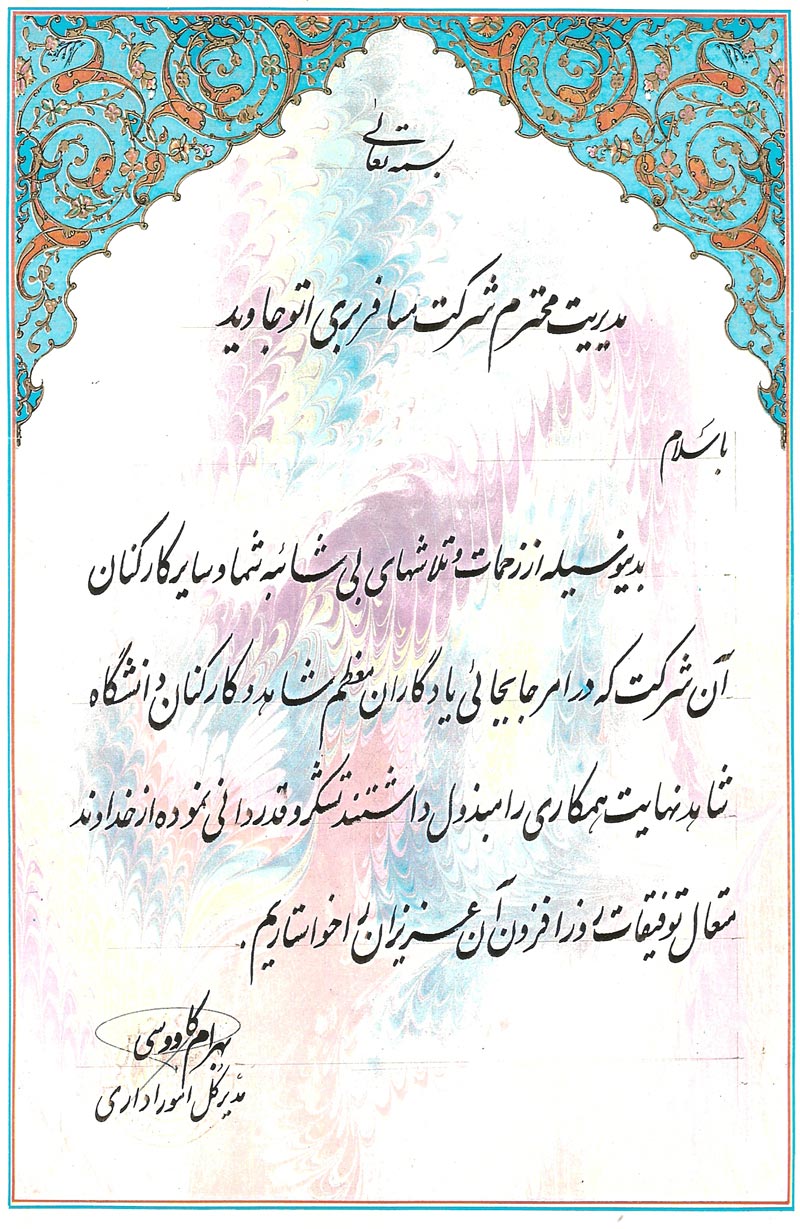 بسمه تعالی
مدیریت محترم شرکت مسافربری اتو جاوید
با سلام
بدینوسیله از زحمات و تلاشهای بی شائبه شما و سایر کارکنان
آن شرکت که در امر جابجائی یادگاران معظم شاهد و کارکنان دانشگاه
شاهد نهایت همکاری را مبذول داشتند تشکر و قدردانی نموده از خداوند
متعال توفیقات روز افزون آن عزیزان را خواستاریم.
بهرام کاووسی
مدیر کل امور اداری